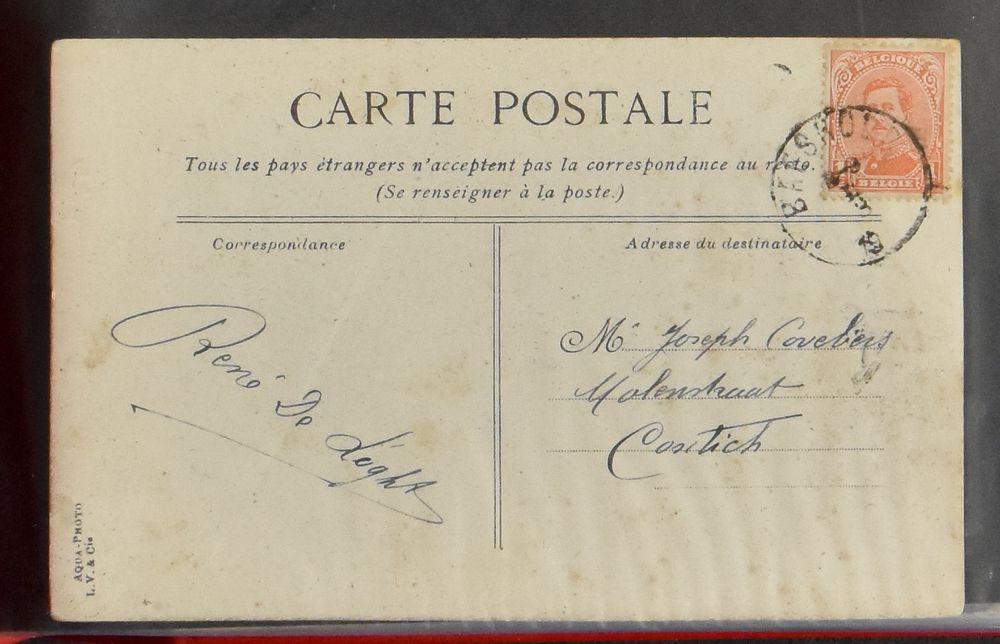 CARTE POSTALE
Tous les pays étrangers n'acceptent pas la correspondance au recto.
(Se renseigner à la poste.)
Correspondance
Adresse du destinataire
BELGIQUE
BELGIE
19
René De
Mr Joseph Coveliers
Molenstraat
Contich
AQUA-PHOTO
L.V. & Cie